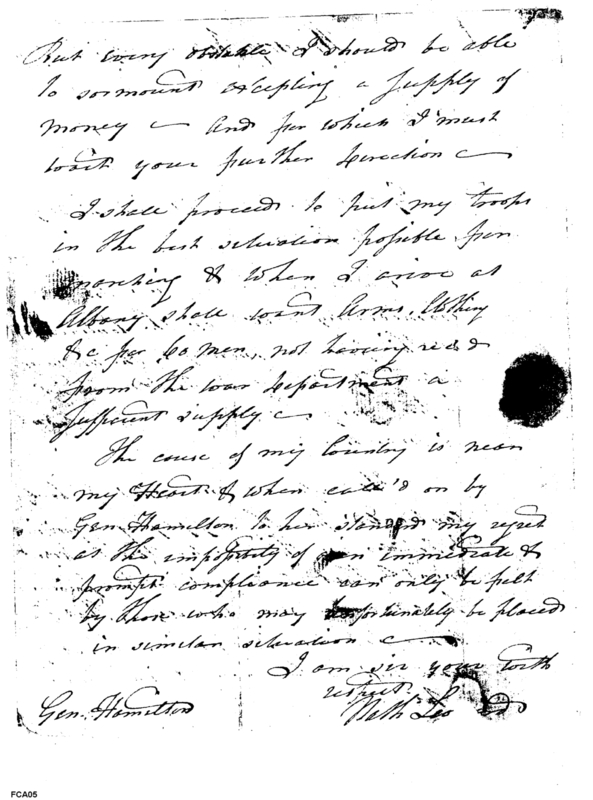 But every obstakle I should be able
to sormount excepling a supply of
money — and for which I must
wait your further direction —
I shall proceed to put my troops
in the best situation possible for
marching & when I arive at
Albany shall want Arms, Clothing
&c for 60 men, not having recd
from the war department a
sufficient supply —
The cause of my Country is near
my Heart & when call'd on by
Gen Hamilton to her standard my regret
at the of an immediate &
prompt compliance can only be felt
by those who may unfortunately be placed
in similar situation —
I am sir your with
respect
Gen. Hamilton Nath Leo
FCA05